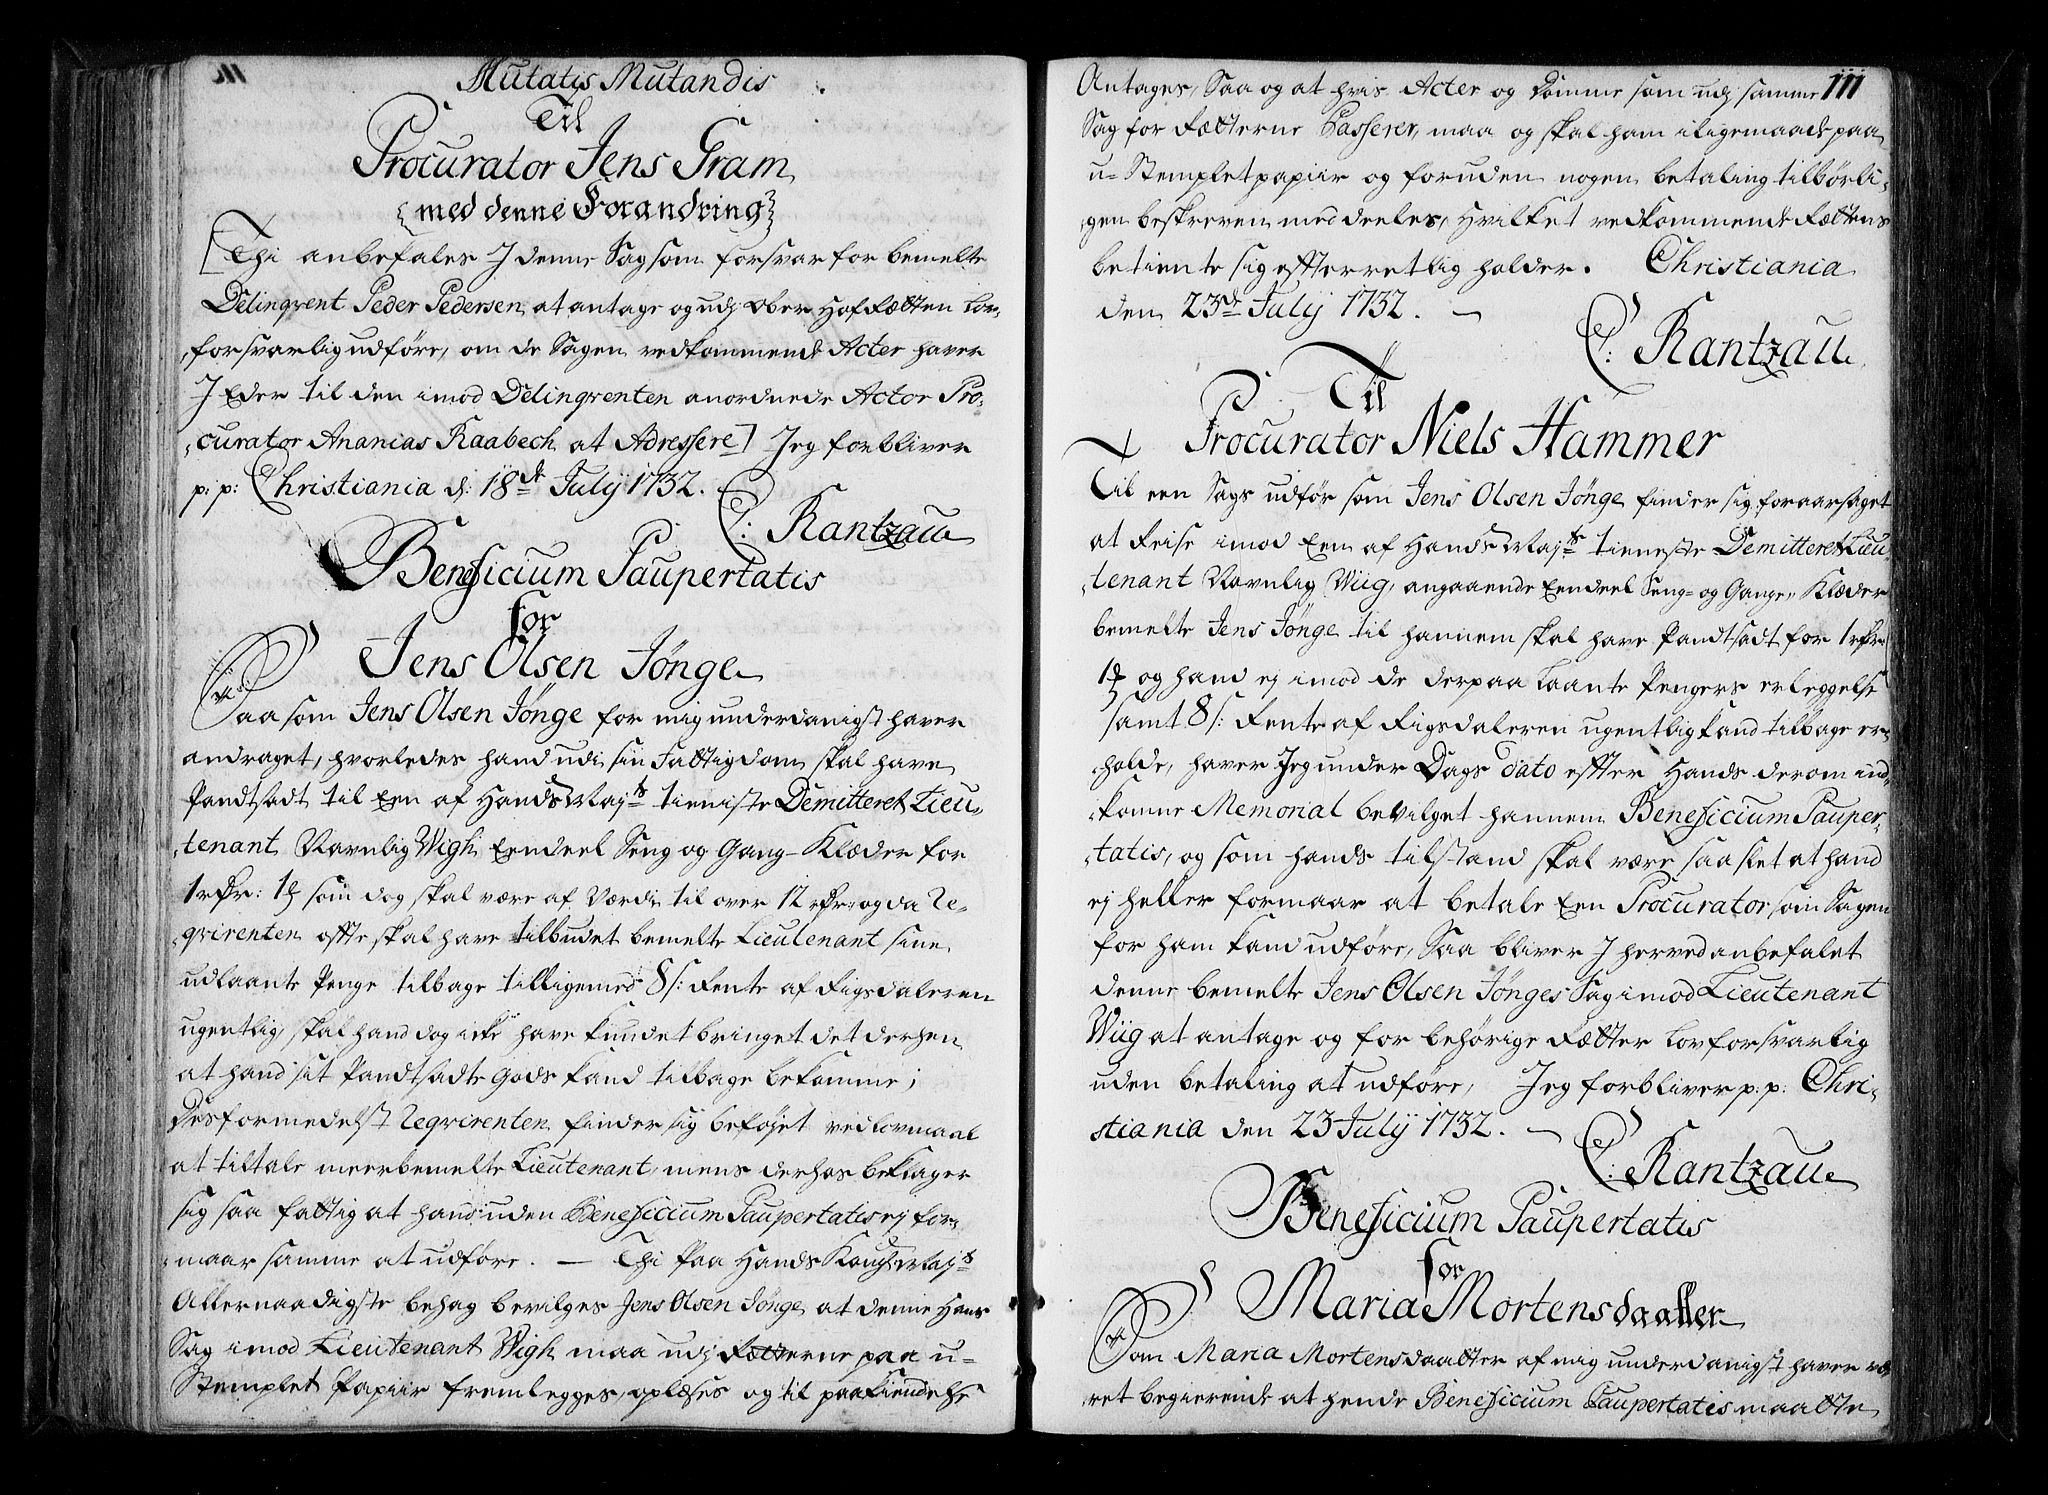 Mutatis Mutandis
Til
Procurator Jens Gram
{med denne Forandring}
[Thi anbefales I denne Sag som forsvar for bemelte
Delinqvent Peder Pedersen at antage og udj Ober Hof Rætten Lov-
forsvarlig udføre, om de Sagen vedkommende Acter haver
I Eder til den imod Delinqventen anordnede Actor Pro-
curator Ananias Raabech at Adressere] Jeg forbliver
p: p: Christiania d: 18de Julÿ 1732.
C: Rantzau
Beneficium Paupertatis
for
Jens Olsen Jönge
Saa som Jens Olsen Jönge for mig underdanigst haver
andraget, hvorledes hand udi sin Fattigdom skal have
Pandtsadt til Een af Hands Majts tieniste Demitteret Lieu-
tenant Navnlig Wigh Eendeel Seng og Gang-Klæder for
1 rdr: 1 som dog skal være af Værdi til over 12 rdr: og da Re-
qvirenten offte skal have tilbudet bemelte Lieutenant sine
udlaante Penge tilbage tilligemed 8 s: Rente af Rigsdaleren
ugentlig, skal hand dog icke have kundet bringet det derhen
at hand sit Pandtsadte Gods kand tilbage bekomme;
Desformedelst Reqvirenten finder sig beføjet ved lovmaal
at tiltale meerbemelte Lieutenant, mens derhos beklager
sig saa fattig at hand uden Beneficium Paupertatis ej for-
maar samme at udføre. — Thi Paa Hands Kongl: Majts
Allernaadigste behag bevilges Jens Olsen Jönge at denne Hans
Sag imod Lieutenant Wigh maa udj Rætterne paa u-
Stemplet Papiir fremlegges, oplæses og til paakiendelse
111
Antages, Saa og at hvis Acter og Domme som udj samme
Sag for Rætterne Passerer, maa og skal ham iligemaade paa
u-Stemplet papiir og foruden nogen betaling tilbørli-
gen beskreven meddeeles, Hvilket vedkommende Rættens
betiente sig effterretlig holder. Christiania
den 23de Julÿ 1732. —
C: Rantzau
Til
Procurator Niels Hammer
Til een Sags udför som Jens Olsen Jönge finder sig foraarsaget
at Reise imod Een af Hands Majts tieneste Demitteret Lieu-
tenant Navnlig Wiig, angaaende Eendeel Seng- og Gange-Klæder
bemelte Jens Jönge til hannem skal have Pandtsadt for 1 rdr:
1 og hand ej imod de derpaa Laante Pengers erleggelse
samt 8 s: Rente af Rigsdaleren ugentlig kand tilbage er-
holde, haver Jeg under Dags dato effter Hands derom ind-
komne Memorial bevilget hannem Beneficium Pauper-
tatis, og som hands tilstand skal være saa slet at hand
ej heller formaar at betale Een Procurator som Sagen
for ham kand udføre, Saa bliver I herved anbefalet
denne bemelte Jens Olsen Jönges Sag imod Lieutenant
Wiig at antage og for behørige Rætter Lovforsvarlig
uden betaling at udføre, Jeg forbliver p: p: Chri-
stiania den 23 Julÿ 1732. —
C: Rantzau
Beneficium Paupertatis
for
Maria Mortensdaatter
Som Maria Mortensdaatter af mig underdanigst haver væ-
ret begierende at hende Beneficium Paupertatis maatte